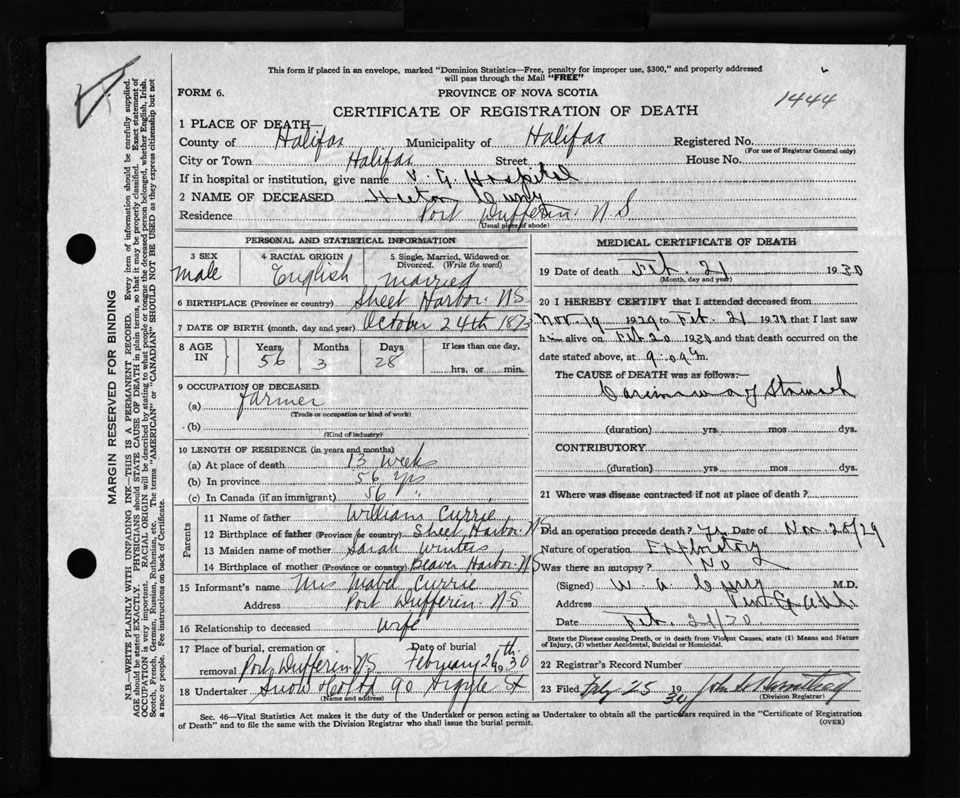 This form if placed in an envelope, marked "Dominion Statistics—Free, penalty for improper use, $300," and properly addressed
will pass through the Mail "FREE"
FORM 6.
PROVINCE OF NOVA SCOTIA
1444
CERTIFICATE OF REGISTRATION OF DEATH
1 PLACE OF DEATH—
County of Halifax Municipality of Halifax Registered No.
(For use of Registrar General only)
City or Town Halifax Street House No.
If in hospital or institution, give name V. G. Hospital
2 NAME OF DECEASED
Residence Port Dufferin. N.S
(Usual place of abode)
PERSONAL AND STATISTICAL INFORMATION
3 SEX
male
4 RACIAL ORIGIN
English
5 Single, Married, Widowed or
Divorced. (Write the word)
Married
6 BIRTHPLACE (Province or country) Sheet Harbor. N.S
7 DATE OF BIRTH (month, day and year) October 24th 1873
8 AGE
IN
Years
56
Months
3
Days
28
If less than one day.
hrs. or min.
9 OCCUPATION OF DECEASED
(a) farmer
(Trade or occupation or kind of work)
(b)
(Kind of industry)
10 LENGTH OF RESIDENCE (in years and months)
(a) At place of death 13 Weeks
(b) In province 56 yrs
(c) In Canada (if an immigrant) 56 "
Parents
11 Name of father William Currie
12 Birthplace of father (Province or country) Sheet Harbor. N.S
13 Maiden name of mother Sarah Winters
14 Birthplace of mother (Province or country) Beaver Harbor. N.S
15 Informant's name Mrs Mabel Currie
Address Port Dufferin. N.S
16 Relationship to deceased wife
17 Place of burial, cremation or
removal Port Dufferin N.S
Date of burial
February 26th 1930
18 Undertaker Snow & Co Ltd 90 Argyle St
(Name and address)
MEDICAL CERTIFICATE OF DEATH
19 Date of death Feb. 21 1930
(Month, day and year)
20 I HEREBY CERTIFY that I attended deceased from
Nov. 19 1929 to Feb. 21 1930 that I last saw
him alive on Feb 20 1930 and that death occurred on the
date stated above, at m.
The CAUSE of DEATH was as follows:—
Carcinoma of Stomach
(duration) yrs mos dys.
CONTRIBUTORY
(duration) yrs mos dys.
21 Where was disease contracted if not at place of death?
Did an operation precede death? Yes Date of Nov. 28/29
Nature of operation Exploratory
Was there an autopsy? No
(Signed) W. A. Curry M.D.
Address
Date Feb. 21/30
State the Disease causing Death, or in death from Violent Causes, state (1) Means and Nature
of Injury, (2) whether Accidental, Suicidal or Homicidal.
22 Registrar's Record Number
23 Filed Feby 25 1930
(Division Registrar)
Sec. 46—Vital Statistics Act makes it the duty of the Undertaker or person acting as Undertaker to obtain all the particulars required in the "Certificate of Registration
of Death" and to file the same with the Division Registrar who shall issue the burial permit.
(OVER)
MARGIN RESERVED FOR BINDING
N.B.—WRITE PLAINLY WITH UNFADING INK—THIS IS A PERMANENT RECORD. Every item of information should be carefully supplied.
AGE should be stated EXACTLY. PHYSICIANS should STATE CAUSE OF DEATH in plain terms, so that it may be properly classified. Exact statement of
OCCUPATION is very important. RACIAL ORIGIN will be described by stating to what people or tongue the deceased person belonged, whether English, Irish,
Scotch, French, German, Russian, Ruthenian, etc. The terms "AMERICAN" or "CANADIAN" SHOULD NOT BE USED as they express citizenship but not
a race or people. See instructions on back of Certificate.